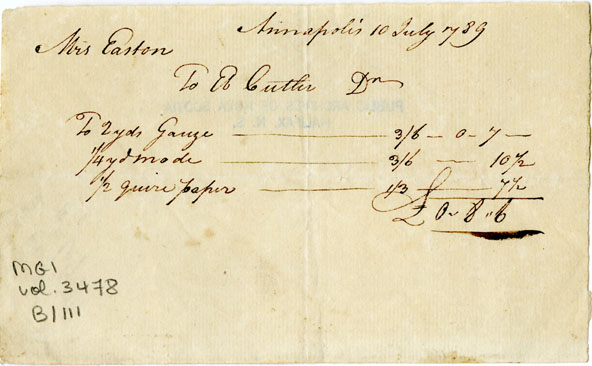 Annapolis 10 July 1789
Mrs Easton
To Eb Cutler Dr
To 2 yds Gauze 3/6 0 - 7 -
1/4 yd mode 3/6 10 1/2
1/2 quire paper 1/3 7 1/2
£ 0 - 8 - 6
PUBLIC ARCHIVES OF NOVA SCOTIA
HALIFAX, N. S.
MG1
vol. 3478
B/111